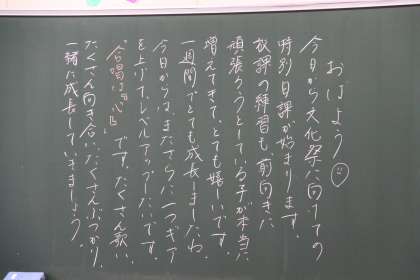 おはよう
今日から文化祭に向けての
特別日課が始まります。
放課の練習も、前向きに
頑張ろうとしている子が本当に
増えてきて、とても嬉しいです。
一週間でとても成長しましたね。
今日からはまたさらに一つギア
を上げて、レベルアップしたいです。
"合唱は心"です。たくさん歌い、
たくさん向き合い、たくさんぶつかり、
一緒に成長していきましょう。